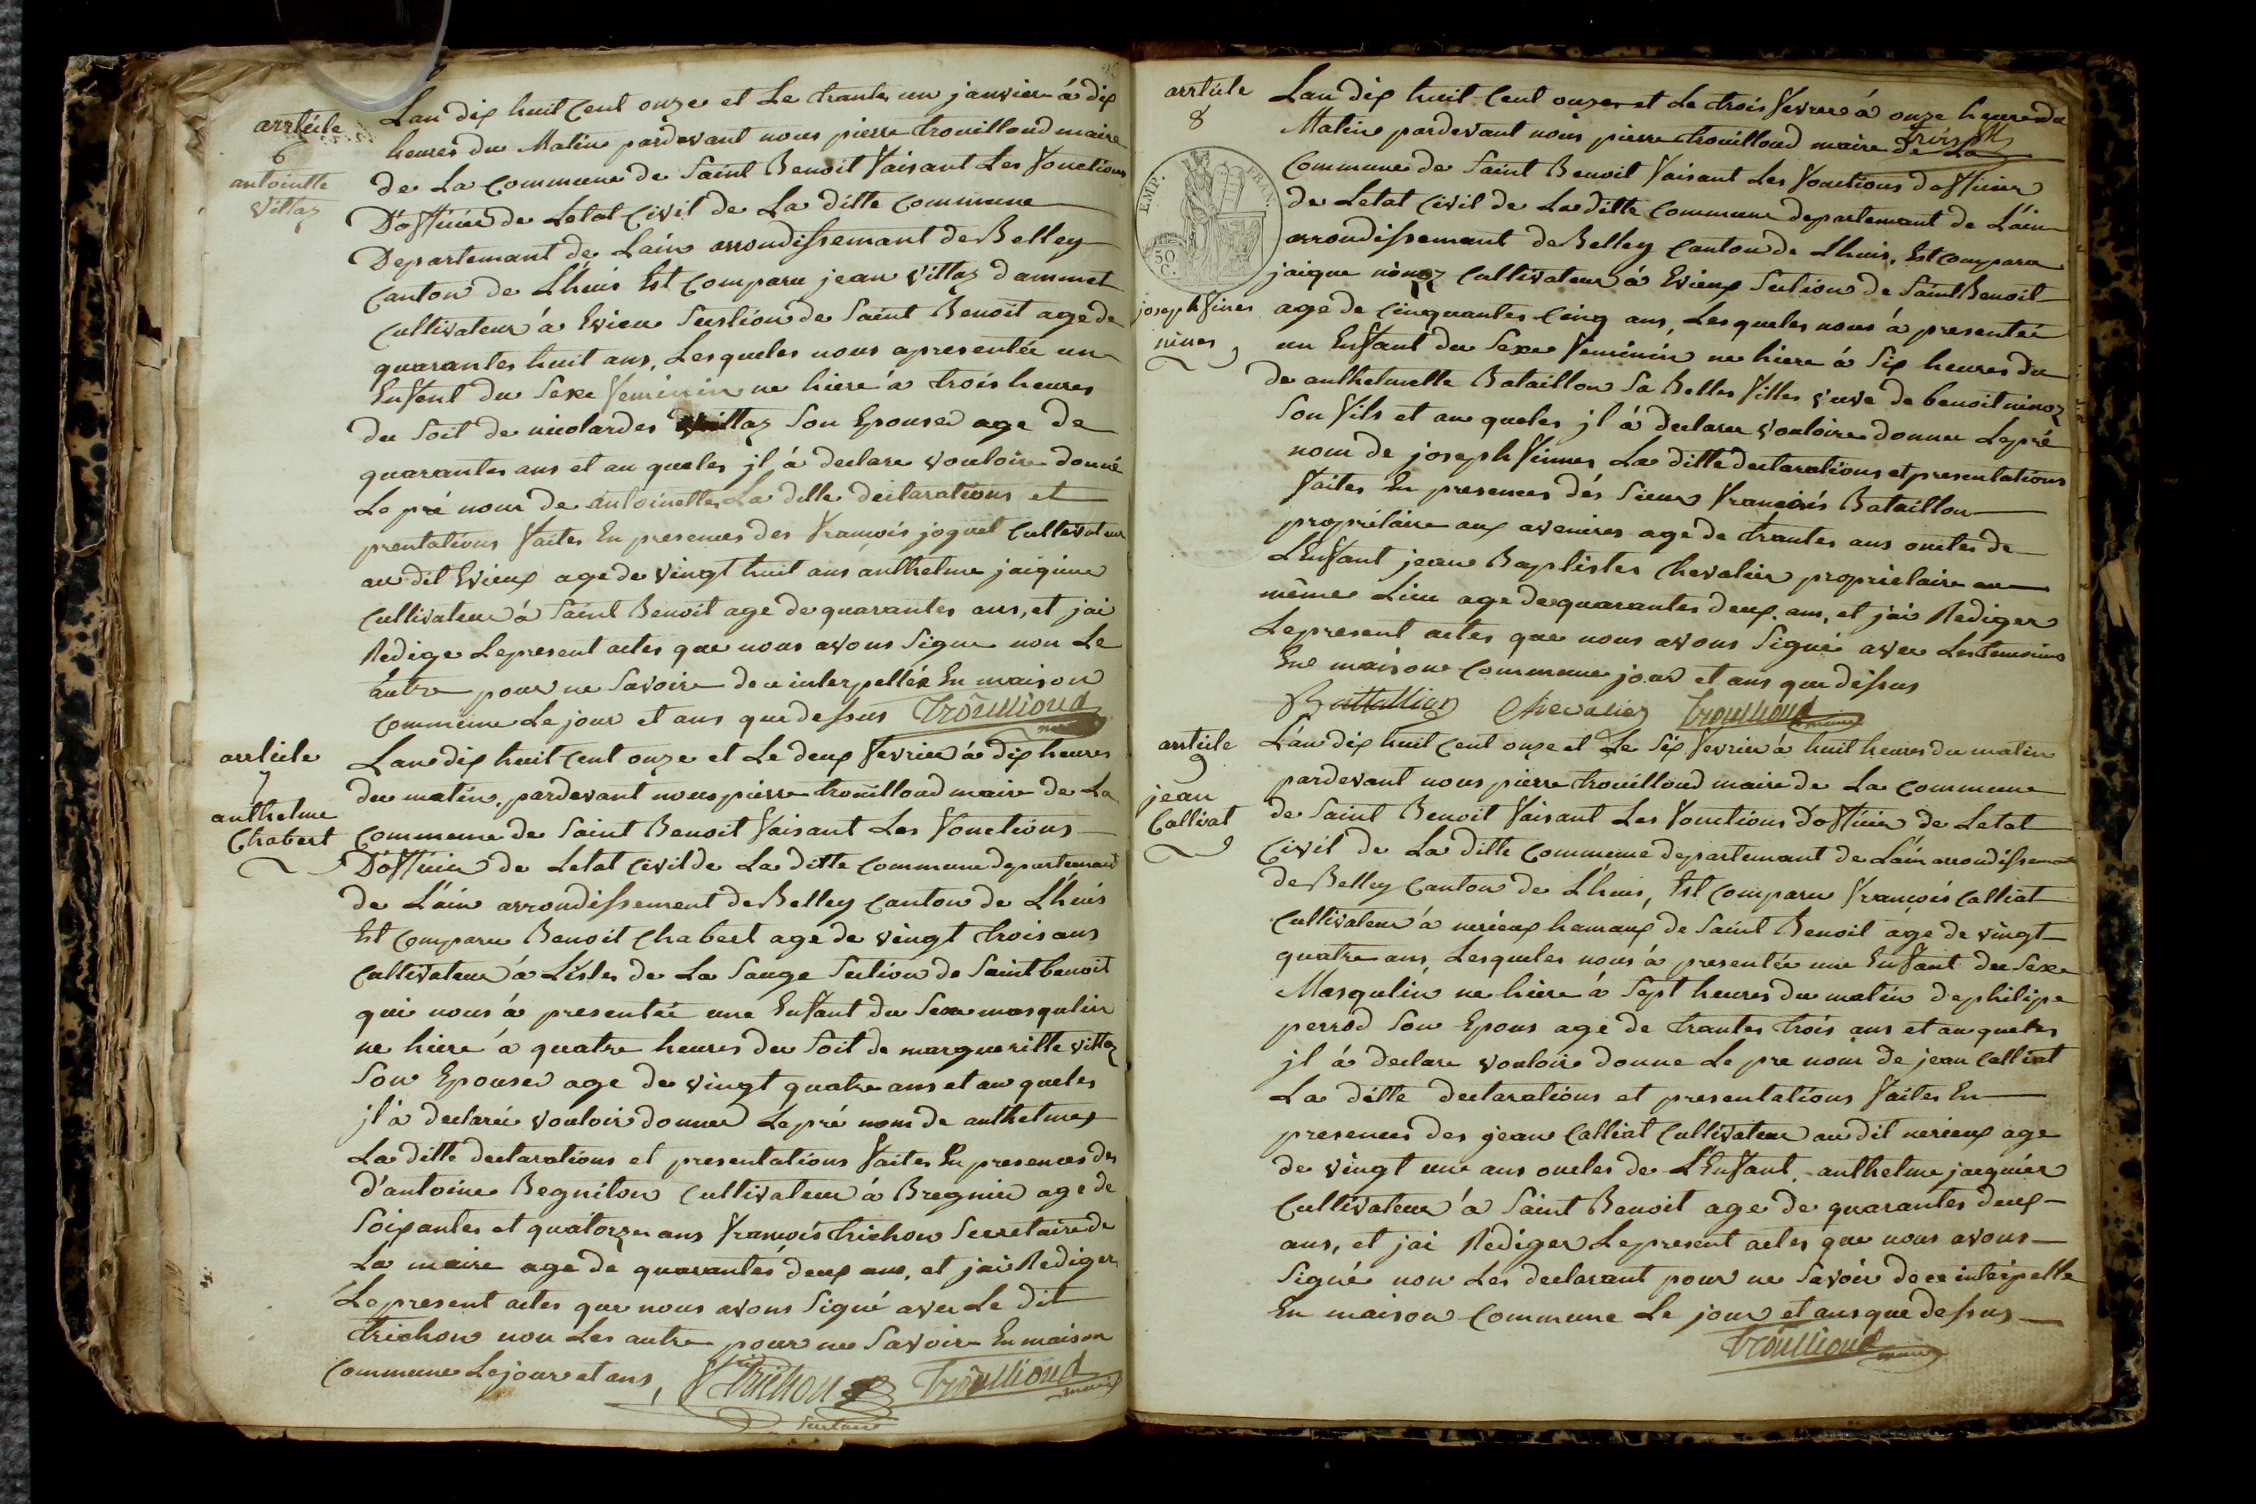 arrticle
6
antointte
Villaz
Lan dix huit Cent onze et Le trantes un janvier á dix
heures du Matin pardevant nous pierre trouilloud maire
de La Commune de Saint Benoit faisant Les fonctions
D'officier de Letat Civil de La ditte Commune
Departemant de Lain arrondissemant de Belley
Canton de Lhuis Est Comparu jean Villaz dammet
Cultivateur á Evieu Sección de Saint Benoit age de
quarantes huit ans, Lesqueles nous apresentée un
Enfent du Sexe feminin ne hiere á trois heures
du Soit de nicolardes Villaz Son Epouse age de
quarantes ans et au queles jl á declare Vouloire donné
Le pré nom de antoinettes La ditte declarations et
prentations faites En presences des françois joguet Cultivateur
au dit Evieux age de Vingt huit ans anthelme jaiquine
Cultivateur á Saint Benoit age de quarantes ans, et jai
Redige Lepresent actes que nous avons Signe non Le
autre pour ne Savoire de ce interpellée En maison
Commune Le jour et ans que dessus Trouilloud
maire
arrticle
7
anthelme
Chabert
Lan dix huit Cent onze et Le deux fevrier á dix heures
du matin, pardevant nous pierre trouilloud maire de La
Commune de Saint Benoit faisant Les fonctions
D'officier de Letat Civil de La ditte Commune departemant
de L'ain arrondissement de Belley Canton de Lhuis
Est Comparu Benoit Chabert age de vingt trois ans
Cultivateur á Lisles de La Sauge Section de Saint benoit
qui nous á presentée une Enfant du Sexe masqulin
ne hiere á quatre heures du Soit de margueritte Villaz
Son Epouse age de vingt quatre ans et au queles
jl á declarée vouloir donner Le pré nom de anthelmes
La ditte declarations et presentations faites En presences des
d'antoine Regniton Cultivateur á Bregnier age de
Soixantes et quatorzes ans françois trichon Secretaire de
La maire age de quarantes deux ans, et jai Rediger
Lepresent actes que nous avons Signé avec Le dit
trichon non Les autre pour ne Savoire En maison
Commune Lejour et ans, Trichon Trouilloud
Sectaire maire
arrticle
8
josephfines
ninos
Lan dix huit Cent onzes et Le trois fevrier á onze heures du
Matin pardevant nous pierre trouilloud maire de La
Commune de Saint Benoit faisant Les fonctions dofficier
EMP. FRAN.
50
C.
de Letat Civil de La ditte Commune departemant de L'ain
arrondissemant de Belley Canton de Lhuis, Est Comparu
jaique ninoz Cultivateur á Evieux Section de Saint Benoit
age de Cinquantes Cinq ans, Lesqueles nous á presentée
un Enfant du Sexe feminin ne hiere á Six heures du
de anthelmette Bataillon Sa Belles filles veuve de benoit ninoz
Son fils et au queles jl á declarer vouloire donner Lepré
nom de josephfinnes La ditte declarations et presentations
faites En presences dés Sieur françois Bataillon
propriétaire aux avenires age de trantes ans oncles de
L'Enfant jean Baptistes Chevalier proprietaire au
même Lieu age de quarantes deux ans, et jai Rediger
Lepresent actes que nous avons Signé avec Les temoins
En maison Commune jour et ans que dessus
Battallion Chevalier Trouilloud
maire
arrticle
9
jean
Calliat
L'an dix huit Cent onze et Le Six fevrier á huit heures du matin
pardevant nous pierre trouilloud maire de La Commune
de Saint Benoit faisant Les fonctions Dofficier de Letat
Civil de La ditte Commune departemant de Lain arrondissemant
de Belley Canton de Lhuis, Est Comparu françois Calliat
Cultivateur á nerieux hamaux de Saint Benoit áge de vingt
quatre ans, Lesqueles nous á presentée une Enfant du Sexe
Masqulin ne hiere á Sept heures du matin de philipe
perrod Son Epous age de trantes trois ans et au queles
jl á declare vouloir donne Le pre nom de jean Calliat
La ditte declarations et presentations faites En
presences des jean Calliat Cultivateur au dit nerieux age
de vingt une ans oncles de L'Enfant, anthelme jaiquier
Cultivateur á Saint Benoit age de quarantes deux
ans, et jai Rediger Lepresent actes que nous avons
Signé non Les declarant pour ne Savoir de ce interpelle
En maison Commune Le jour et ans que dessus
Trouilloud
maire